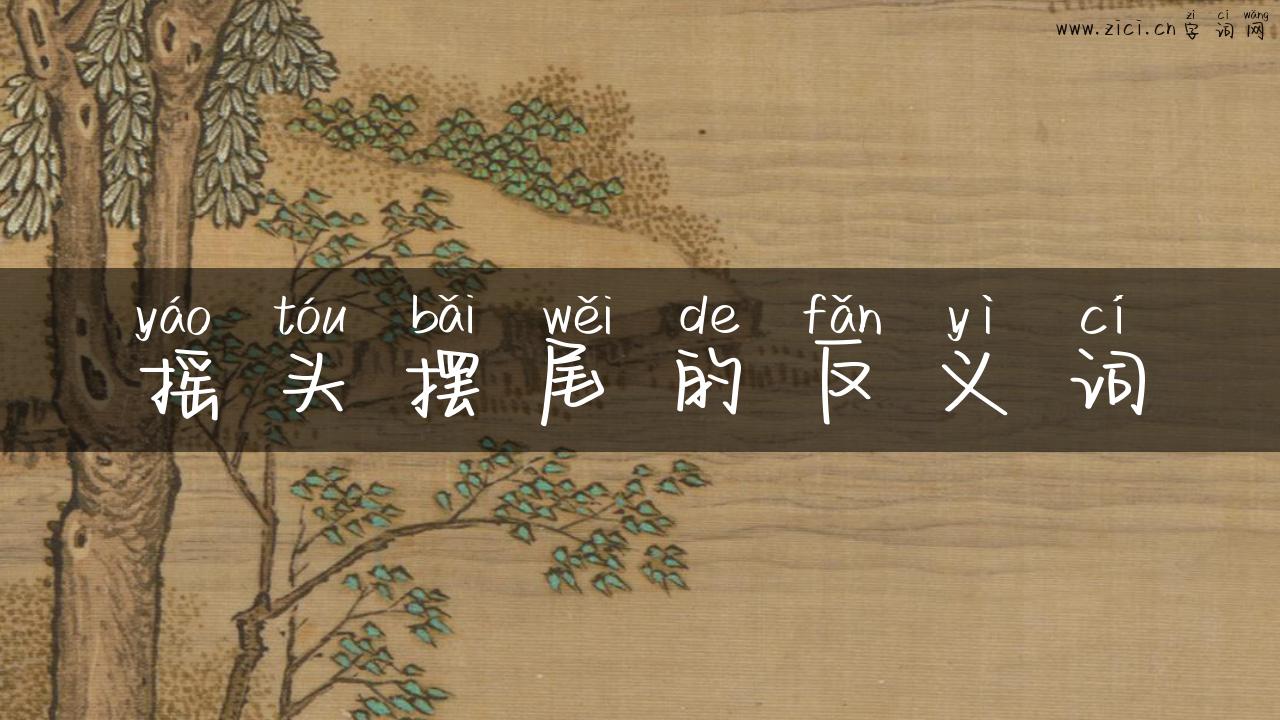 zì cí wǎng
www.zici.cn 字词网
yáo tóu bǎi wěi de fǎn yì cí
摇头摆尾的反义词